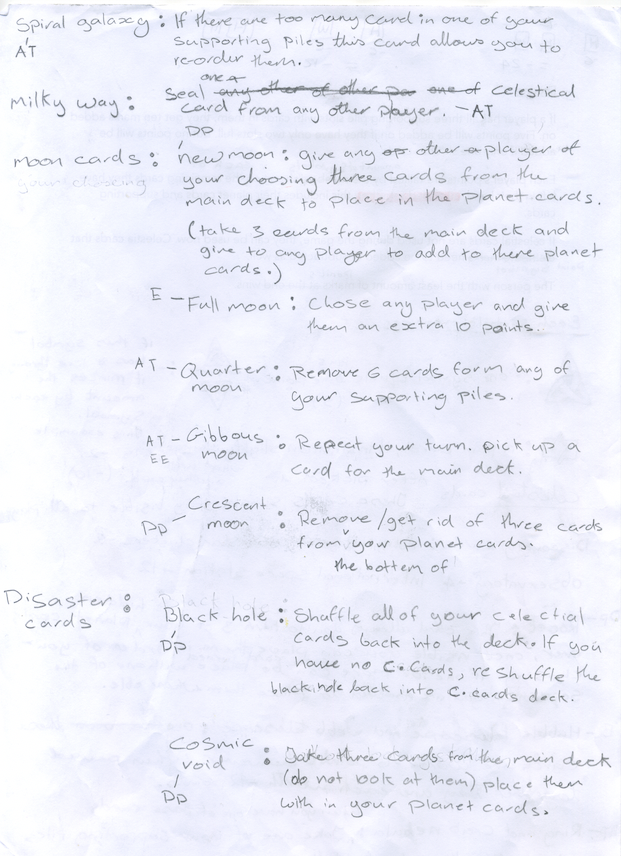 Spiral galaxy : If there are too many card in one of your
A'T supporting piles this card allows you to
re-order them.
one A
Milky way : Seal any other of other one of celestical
card from any other player. - AT
DD
Moon cards : new moon : give any other player of
your chosing your choosing three cards from the
main deck to place in the planet cards.
(take 3 cards from the main deck and
give to any player to add to there planet
cards.)
E - Full moon : Chose any player and give
them an extra 10 points.
AT - Quarter : Remove 6 cards form any of
moon your supporting piles.
AT - Gibbous : Repeat your turn. pick up a
EE moon card for the main deck.
Crescent
DD - moon : Remove /get rid of three cards
from your planet cards.
the bottom of
Disaster :
cards Black-hole : Shuffle all of your celestial
cards back into the deck. If you
DD have no C.Cards, reshuffle the
blackhole back into C.cards deck.
Cosmic : Take three cards from the main deck
void (do not look at them) place them
DD with in your planet cards.